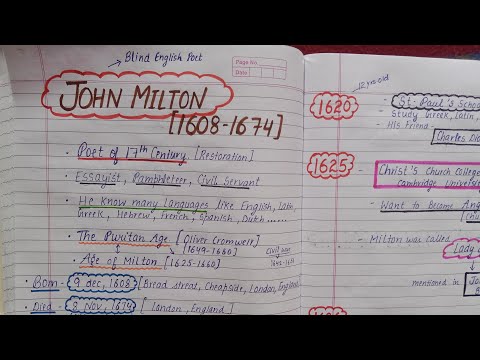 Blind English Poet
Page No
Date
JOHN MILTON
[1608-1674]
• Poet of 17th Century [Restoration]
• Essayist, Pamphleteer, Civil Servant
• He know many languages like English, Latin
Greek, Hebrew, French, Spanish, Dutch ......
• The Puritan Age [Oliver Cromwell]
[1649-1660]
Civil war
1642-
• Age of Milton [1625-1660]
• Born - 9 dec, 1608 [Bread street, Cheapside, London, England
• Died - 8 Nov, 1674 [London, England]
12 yrs old
1620
- St. Paul's Schoo
Study Greek, Latin,
- His Friend -
Charles Dio
1625
- Christ's Church College
Cambridge Universi
- Want to Became Ang
- Milton was called
Lady o
mentioned in